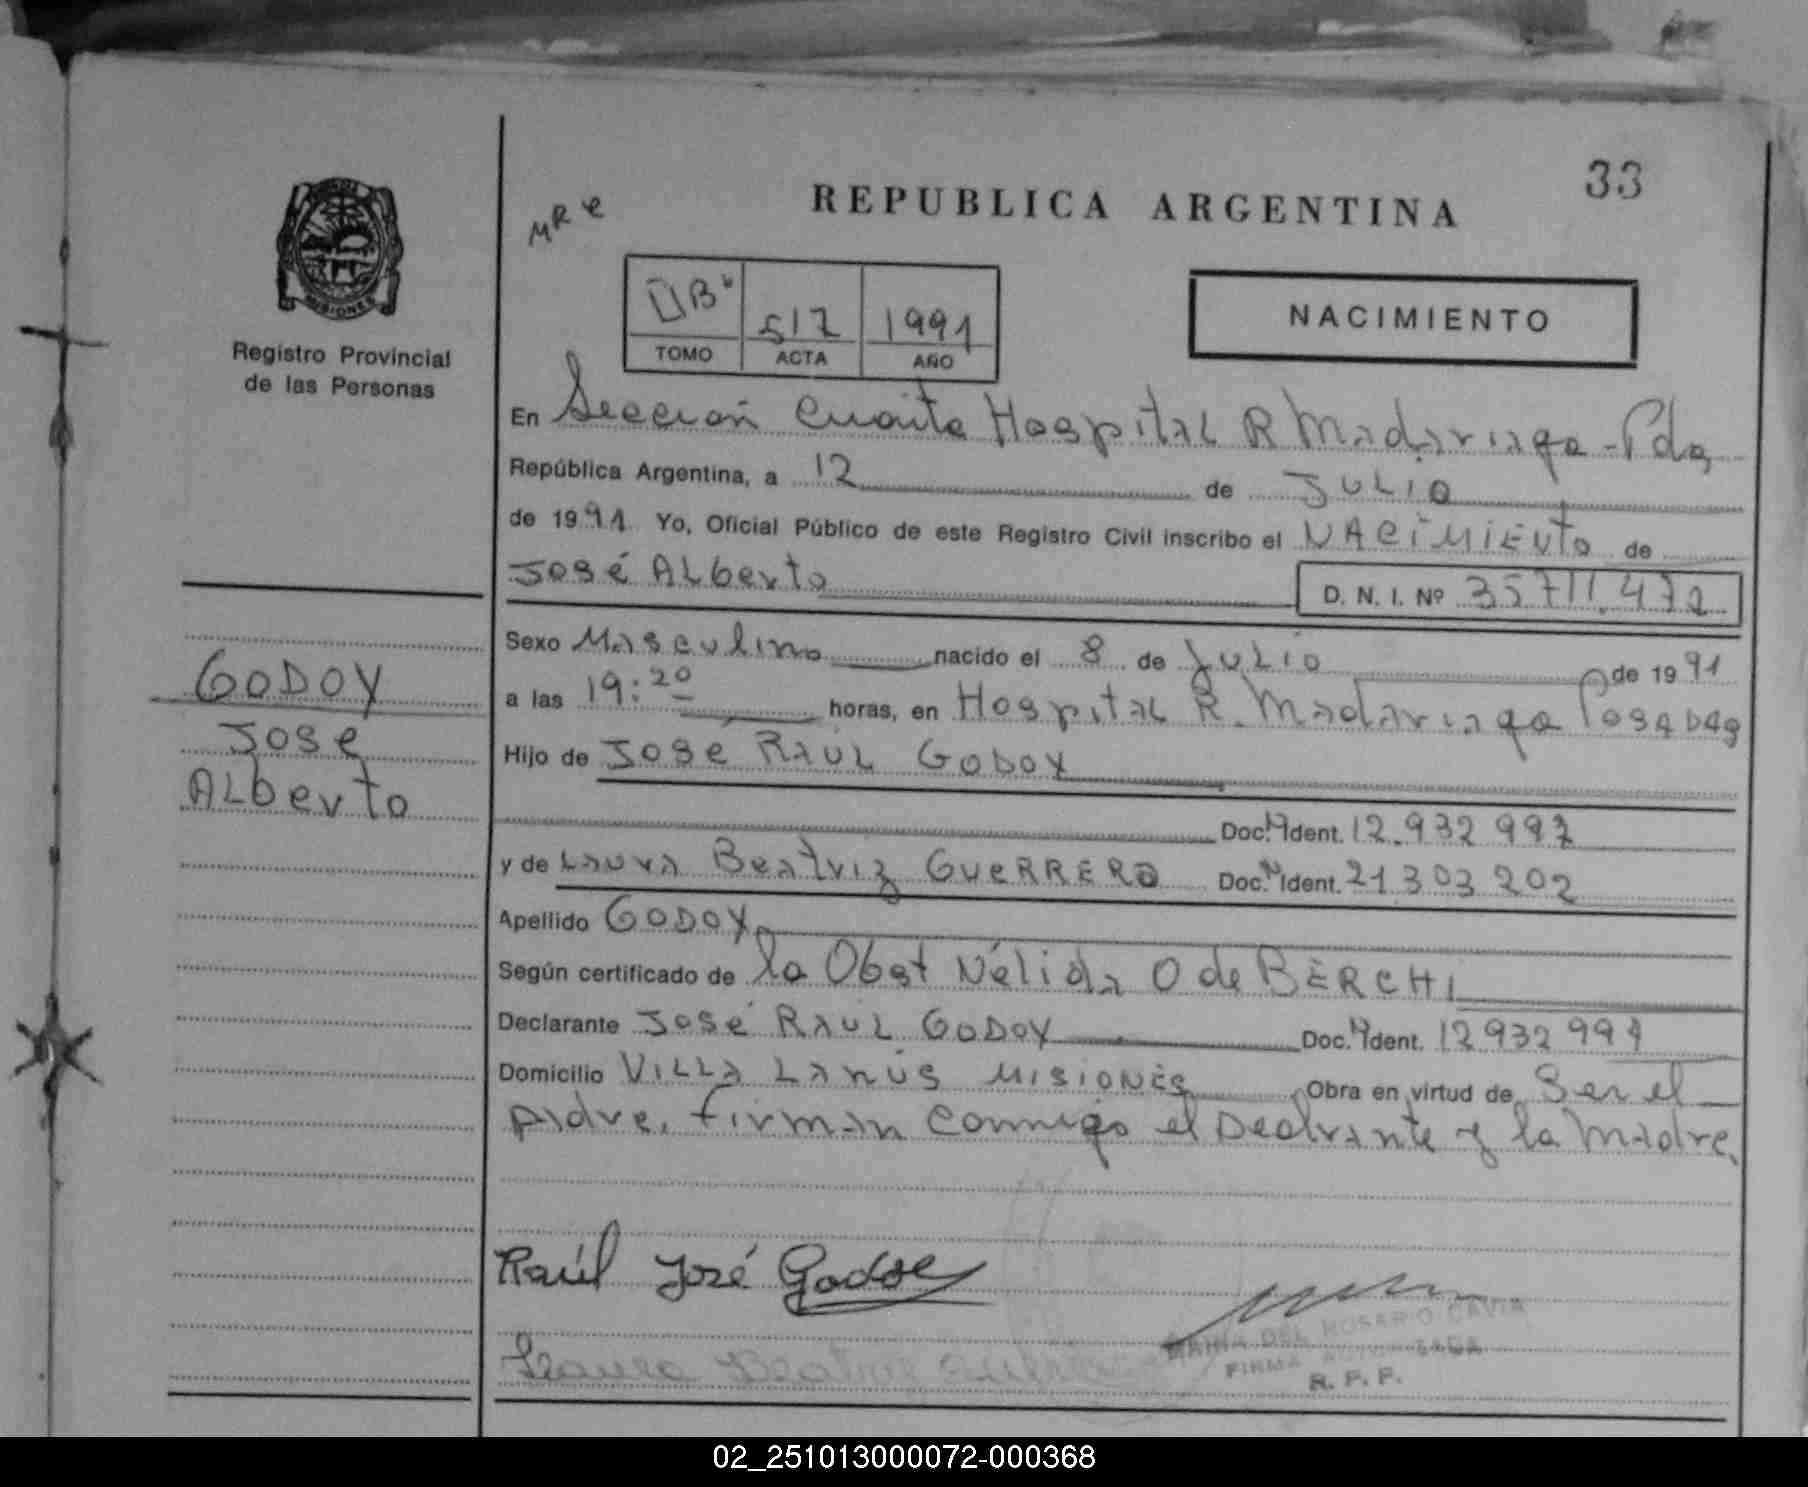 33
REPUBLICA ARGENTINA
MISIONES
Registro Provincial
de las Personas
517 1991
TOMO ACTA AÑO
NACIMIENTO
En Sección Cuarta Hospital R Madariaga - Pdas
República Argentina, a 12 de JULIO
de 1991 Yo, Oficial Público de este Registro Civil inscribo el NACIMIENTO de
José Alberto D. N. I. Nº 35711.472
Sexo Masculino nacido el 8 de Julio de 1991
a las 19:20 horas, en Hospital R. Madariaga Posadas
Hijo de José Raúl Godoy
Doc. N Ident. 12.932 997
y de Laura Beatriz GUERRERO Doc. N Ident. 21 303 202
Apellido GODOY
Según certificado de la Obst Nélida O de BERCHI
Declarante José Raúl Godoy Doc. N Ident. 12932 997
Domicilio Villa Lanús Misiones Obra en virtud de Ser el
padre. Firman conmigo el Declarante y la madre.
GODOY
José
Alberto
Raúl José Godoy
Laura Beatriz
MARIA DEL ROSARIO CAVIA
FIRMA AUTORIZADA
R. P. P.
02_251013000072-000368